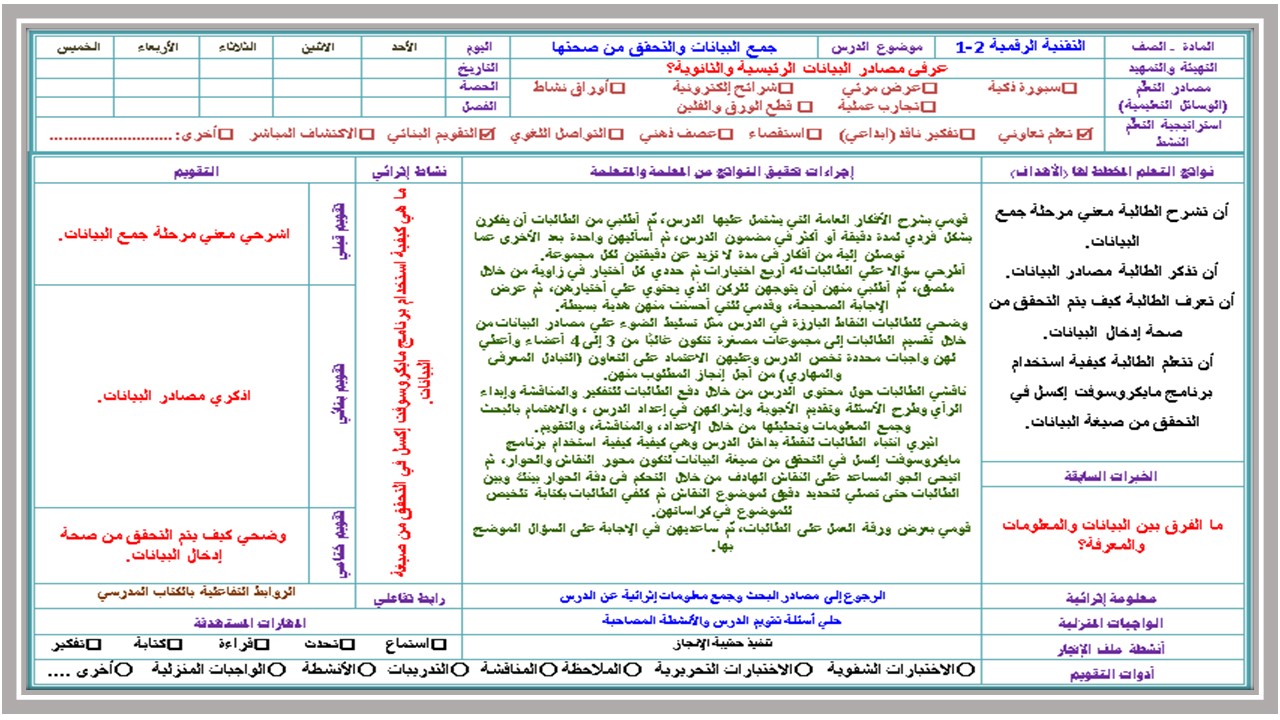 المادة - الصف التقنية الرقمية 2-1 موضوع الدرس جمع البيانات والتحقق من صحتها اليوم الأحد الاثنين الثلاثاء الأربعاء الخميس
التهيئة والتمهيد عرفي مصادر البيانات الرئيسية والثانوية؟ التاريخ
مصادر التعلم (الوسائل التعليمية) سبورة ذكية عرض مرئي شرائح إلكترونية أوراق نشاط الحصة
تجارب عملية قطع الورق والفلين الفصل
استراتيجية التعلم النشط تعلم تعاوني تفكير ناقد (ابداعي) استقصاء عصف ذهني التواصل اللغوي التقويم البنائي الاكتشاف المباشر أخرى: ..........................
نواتج التعلم المخطط لها (الأهداف) إجراءات تحقيق النواتج من المعلمة والمتعلمة نشاط إثرائي التقويم
أن تشرح الطالبة معني مرحلة جمع
البيانات.
أن تذكر الطالبة مصادر البيانات.
أن تعرف الطالبة كيف يتم التحقق من
صحة إدخال البيانات.
أن تتعلم الطالبة كيفية استخدام
برنامج مايكروسوفت إكسل في
التحقق من صيغة البيانات.
الخبرات السابقة
ما الفرق بين البيانات والمعلومات
والمعرفة؟
قومي بشرح الأفكار العامة التي يشتمل عليها الدرس، ثم أطلبي من الطالبات أن يفكرن
بشكل فردي لمدة دقيقة أو أكثر في مضمون الدرس، ثم أسأليهن واحدة بعد الأخرى عما
توصلن إلية من أفكار في مدة لا تزيد عن دقيقتين لكل مجموعة.
أطرحي سؤالا علي الطالبات له أربع اختيارات ثم حددي كل أختيار في زاوية من خلال
ملصق، ثم أطلبي منهن أن يتوجهن للركن الذي يحتوي علي أختيارهن، ثم عرض
الإجابة الصحيحة، وقدمي للتي أحسنت منهن هدية بسيطة.
وضحي للطالبات النقاط البارزة في الدرس مثل تسليط الضوء علي مصادر البيانات من
خلال تقسيم الطالبات إلى مجموعات مصغرة تتكون غالبًا من 3 إلى 4 أعضاء وأعطي
لهن واجبات محددة تخص الدرس وعليهن الاعتماد على التعاون (التبادل المعرفي
والمهاري) من أجل إنجاز المطلوب منهن.
ناقشي الطالبات حول محتوى الدرس من خلال دفع الطالبات للتفكير والمناقشة وإبداء
الرأي وطرح الأسئلة وتقديم الأجوبة وإشراكهن في إعداد الدرس ، والاهتمام بالبحث
وجمع المعلومات وتحليلها من خلال الإعداد، والمناقشة، والتقويم.
اثيري انتباه الطالبات لنقطة بداخل الدرس وهي كيفية كيفية استخدام برنامج
مايكروسوفت إكسل في التحقق من صيغة البيانات لتكون محور النقاش والحوار، ثم
اتيحى الجو المساعد على النقاش الهادف من خلال التحكم فى دفة الحوار بينك وبين
الطالبات حتى تصلي لتحديد دقيق لموضوع النقاش ثم كلفي الطالبات بكتابة تلخيص
للموضوع في كراساتهن.
قومي بعرض ورقة العمل على الطالبات، ثم ساعديهن في الإجابة على السؤال الموضح
بها.
ما هي كيفية استخدام برنامج مايكروسوفت إكسل في التحقق من صيغة
البيانات.
تقويم قبلي اشرحي معني مرحلة جمع البيانات.
تقويم بنائي اذكري مصادر البيانات.
تقويم ختامي وضحي كيف يتم التحقق من صحة
إدخال البيانات.
معلومة إثرائية الرجوع إلى مصادر البحث وجمع معلومات إثرائية عن الدرس رابط تفاعلي الروابط التفاعلية بالكتاب المدرسي
الواجبات المنزلية حلي أسئلة تقويم الدرس والأنشطة المصاحبة المهارات المستهدفة
أنشطة ملف الإنجاز تنفيذ حقيبة الإنجاز استماع تحدث قراءة كتابة تفكير
أدوات التقويم الاختبارات الشفوية الاختبارات التحريرية الملاحظة المناقشة التدريبات الأنشطة الواجبات المنزلية أخرى ....